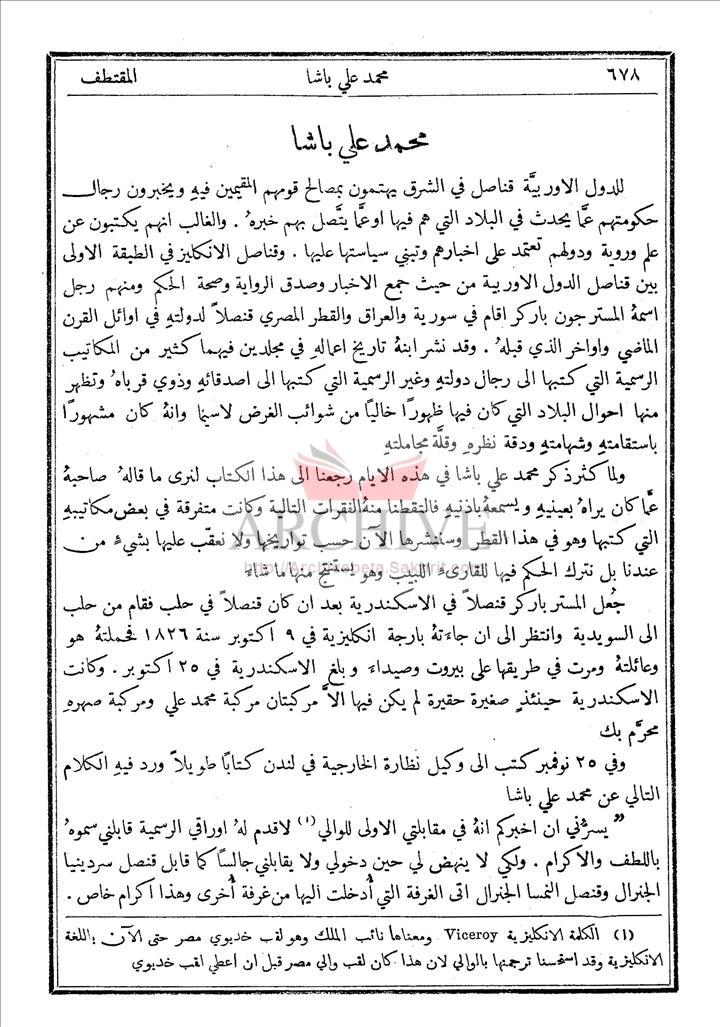 ٦٧٨ محمد علي باشا المقتطف
محمد علي باشا
للدول الاوربيَّة قناصل في الشرق يهتمون بمصالح قومهم المقيمين فيهِ ويخبرون رجال
حكومتهم عمَّا يحدث في البلاد التي هم فيها اوعمَّا يتَّصل بهم خبرهُ . والغالب انهم يكتبون عن
علم وروية ودولهم تعتمد على اخبارهم وتبني سياستها عليها . وقناصل الانكليز في الطبقة الاولى
بين قناصل الدول الاوربية من حيث جمع الاخبار وصدق الرواية وصحة الحكم ومنهم رجل
اسمهُ المستر جون باركر اقام في سورية والعراق والقطر المصري قنصلاً لدولتهِ في اوائل القرن
الماضي واواخر الذي قبلهُ . وقد نشر ابنهُ تاريخ اعمالهِ في مجلدين فيهما كثير من المكاتيب
الرسمية التي كتبها الى رجال دولتهِ وغير الرسمية التي كتبها الى اصدقائهِ وذوي قرباهُ وتظهر
منها احوال البلاد التي كان فيها ظهورًا خاليًا من شوائب الغرض لاسيما وانهُ كان مشهورًا
باستقامتهِ وشهامتهِ ودقة نظرهِ وقلَّة مجاملتهِ
ولما كثر ذكر محمد علي باشا في هذه الايام رجعنا الى هذا الكتاب لنرى ما قالهُ صاحبهُ
عمَّا كان يراهُ بعينيهِ ويسمعهُ باذنيهِ فالتقطنا منهُ الفقرات التالية وكانت متفرقة في بعض مكاتيبهِ
التي كتبها وهو في هذا القطر وسننشرها الآن حسب تواريخها ولا نعقّب عليها بشيءٍ من
عندنا بل نترك الحكم فيها للقارىء اللبيب وهو يستنتج منها ما شاء
ARCHIVE
جُعل المستر باركر قنصلاً في الاسكندرية بعد ان كان قنصلاً في حلب فقام من حلب
الى السويدية وانتظر الى ان جاءَتهُ بارجة انكليزية في ٩ اكتوبر سنة ١٨٢٦ فحملتهُ هو
وعائلتهُ ومرت في طريقها على بيروت وصيداء وبلغ الاسكندرية في ٢٥ اكتوبر . وكانت
الاسكندرية حينئذٍ صغيرة حقيرة لم يكن فيها الاَّ مركبتان مركبة محمد علي ومركبة صهرهِ
محرَّم بك
وفي ٢٥ نوفمبر كتب الى وكيل نظارة الخارجية في لندن كتابًا طويلاً ورد فيهِ الكلام
التالي عن محمد علي باشا
" يسرُّني ان اخبركم انهُ في مقابلتي الاولى للوالي (١) لاقدم لهُ اوراقي الرسمية قابلني سموهُ
باللطف والاكرام . ولكي لا ينهض لي حين دخولي ولا يقابلني جالسًا كما قابل قنصل سردينيا
الجنرال وقنصل النمسا الجنرال اتى الغرفة التي أُدخلت اليها من غرفة أُخرى وهذا اكرام خاص .
(١) الكلمة الانكليزية Viceroy ومعناها نائب الملك وهو لقب خديوي مصر حتى الآن باللغة
الانكليزية وقد استحسنا ترجمتها بالوالي لان هذا كان لقب والي مصر قبل ان اعطي لقب خديوي